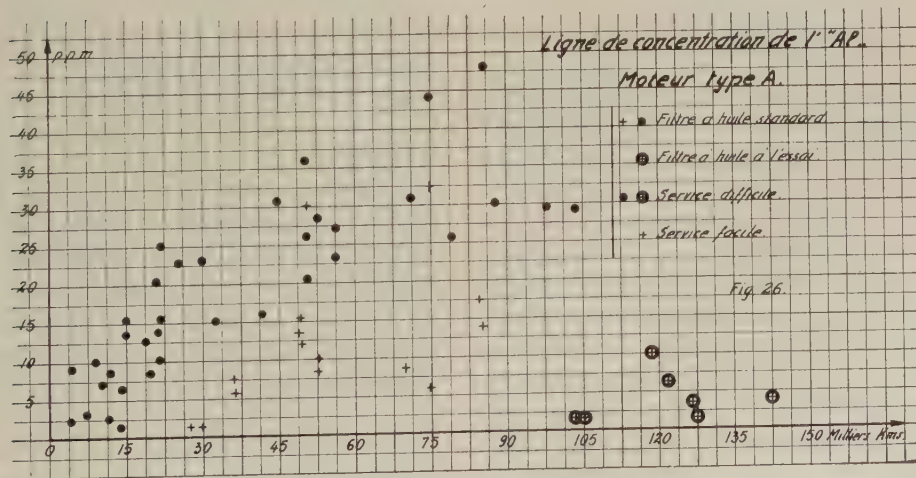 Ligne de concentration de l' "Al"
Moteur type A.
+ ● Filtre a huile standard
Filtre a huile à l'essai
Service difficile.
+ Service facile.
Fig. 26.
p.p.m
50
45
40
35
30
25
20
15
10
5
0 15 30 45 60 75 90 105 120 135 150 Milliers Kms.